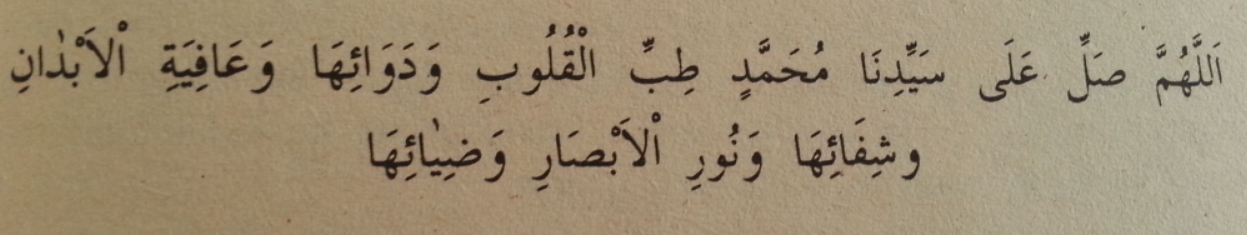 اَللَّهُمَّ صَلِّ عَلَى سَيِّدِنَا مُحَمَّدٍ طِبِّ الْقُلُوبِ وَدَوَائِهَا وَ عَافِيَةِ اْلاَبْدٰانِ
وشِفَائِهَا وَنُورِ اْلاَبْصَارِ وَضِيٰائِهَا